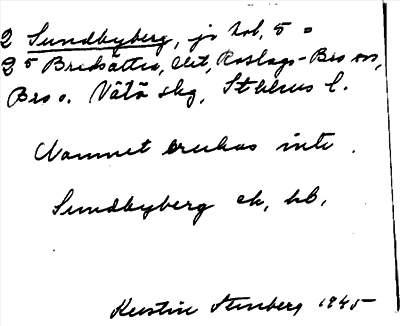 2 Sundbyberg, jr hel, 5 =
2 5 Bredsättra, Roslags-Bro sn,
Bro o. Vätö skg, Sthlms l.
Namnet brukas inte.
Sundbyberg ek, hb,
Kerstin Stenberg 1945